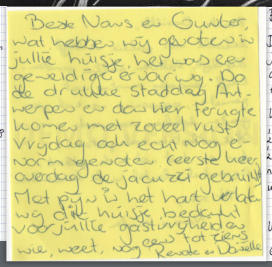 Beste Nans en Gunter,
wat hebben wij genoten in
jullie huisje, het was een
geweldige ervaring. Do
de drukke staddag Ant-
werpen en dan hier terugte
komen met zoveel rust,
Vrijdag ook echt nog e-
norm genoten, eerste keer
overdag de jacuzzi gebruikt
Met pijn in het hart verlaten
wij dit huisje, bedankt
voor jullie gastvrijheid en
wie, weet, nog eens tot ziens
Renate en Danielle